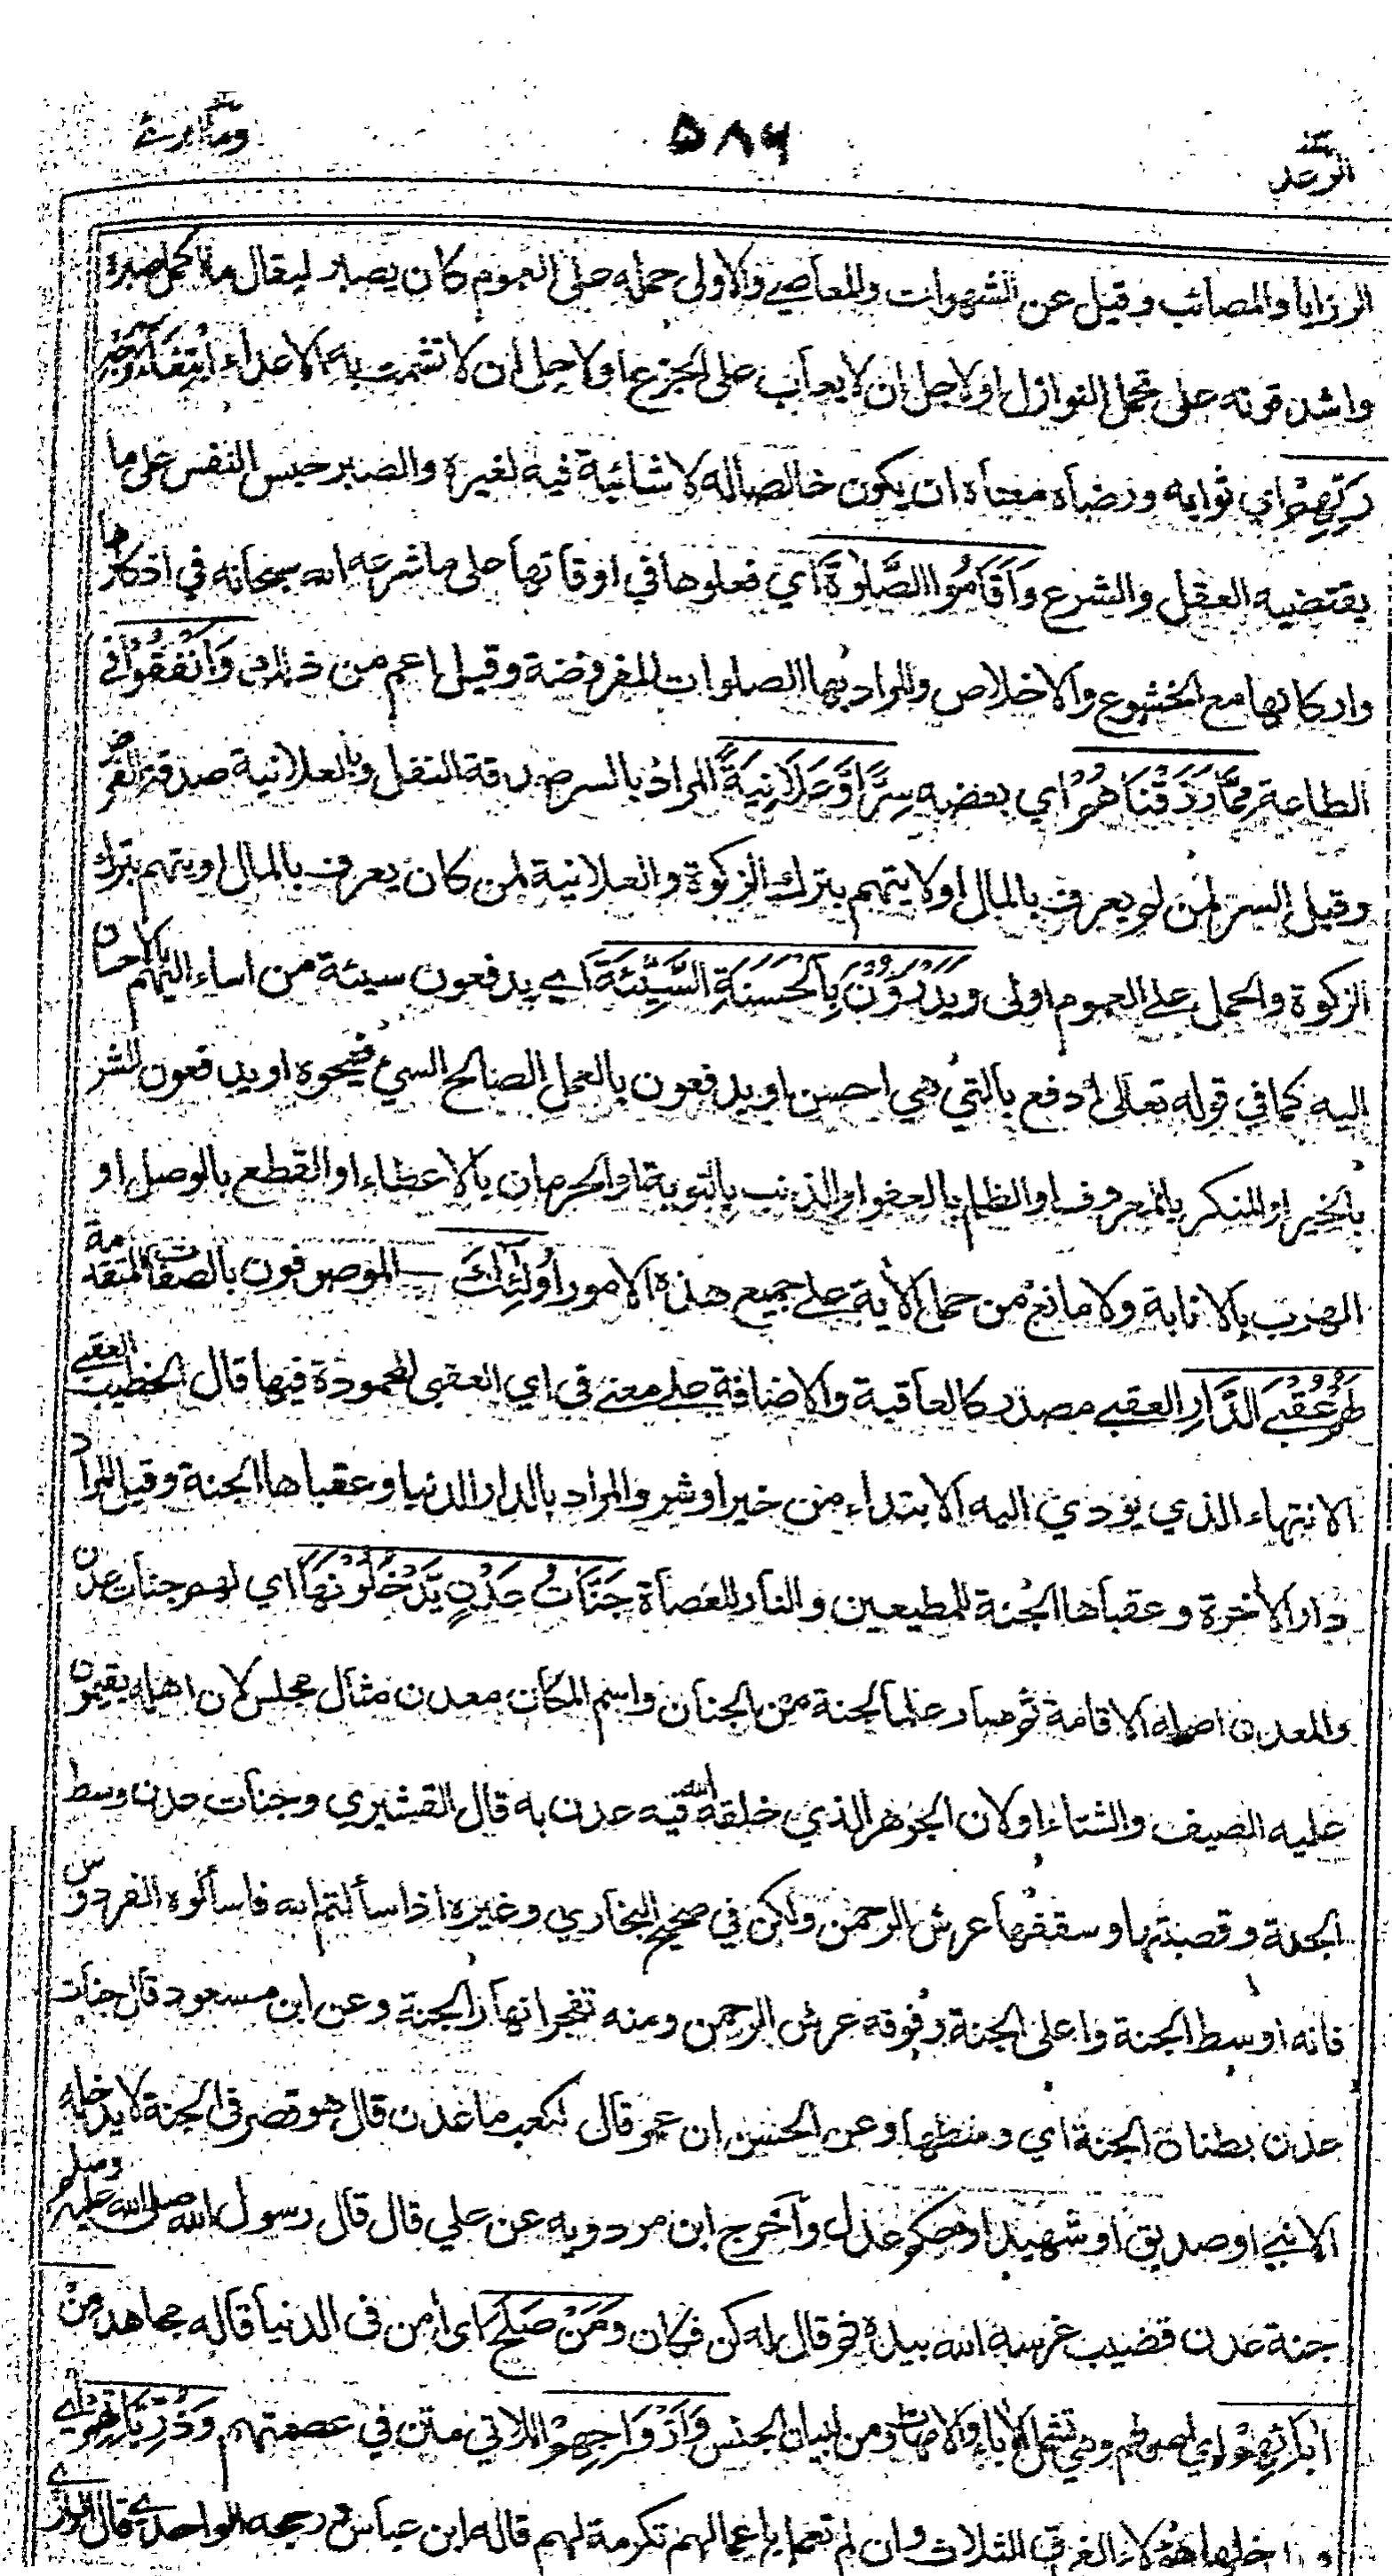 الرعد
٥٨٩
وما ابرئ
الرزايا والمصائب وقيل عن الشهوات والمعاصي والاولى حمله على العموم كان يصبر ليقال ما اكمل صبره
واشد قوته على تحمل النوازل او لاجل ان لا يعاب على الجزع او لاجل ان لا تشمت به الاعداء ابْتِغَاءَ وَجْهِ
رَبِّهِمْ اي ثوابه ورضاه معناه ان يكون خالصا له لا شائبة فيه لغيره والصبر حبس النفس على ما
يقتضيه العقل والشرع وَأَقَامُوا الصَّلٰوةَ اي فعلوها في اوقاتها على ما شرعه الله سبحانه في اذكارها
واركانها مع الخشوع والاخلاص والمراد بها الصلوات المفروضة وقيل اعم من ذلك وَأَنْفَقُوْا في
الطاعة مِمَّا رَزَقْنَاهُمْ اي بعضه سِرًّا وَّعَلَانِيَةً المراد بالسر صدقة النفل وبالعلانية صدقة الفرض
وقيل السر لمن لم يعرف بالمال او لا يتهم بترك الزكوة والعلانية لمن كان يعرف بالمال او يتهم بترك
الزكوة والحمل على العموم اولى ويَدْرَؤُنَ بِالْحَسَنَةِ السَّيِّئَةَ اي يدفعون سيئة من اساء اليهم بالاحسان
اليه كما في قوله تعالى ادفع بالتي هي احسن او يدفعون بالعمل الصالح السيئ فيمحوه او يدفعون الشر
بالخير او المنكر بالمعروف او الظلم بالعفو او الذنب بالتوبة او الحرمان بالاعطاء او القطع بالوصل او
الهرب بالانابة ولا مانع من حمل الآية على جميع هذه الامور أُولٰئِكَ الموصوفون بالصفات المتقدمة
لَهُمْ عُقْبَى الدَّارِ العقبى مصدر كالعاقبة والاضافة على معنى في اي العقبى المحمودة فيها قال الخطيب العقبى
الانتهاء الذي يؤدي اليه الابتداء من خير او شر والمراد بالدار الدنيا وعقباها الجنة وقيل المراد
دار الآخرة وعقباها الجنة للمطيعين والنار للعصاة جَنَّاتُ عَدْنٍ يَّدْخُلُوْنَهَا اي لهم جنات عدن
والعدن اصله الاقامة ثم صار علما لجنة من الجنان واسم المكان معدن مثال مجلس لان اهله يقيمون
عليه الصيف والشتاء او لان الجوهر الذي خلقه الله فيه عدن به قال القشيري وجنات عدن وسط
الجنة وقصبتها وسقفها عرش الرحمن ولكن في صحيح البخاري وغيره اذا سألتم الله فاسألوه الفردوس
فانه اوسط الجنة واعلى الجنة وفوقه عرش الرحمن ومنه تفجر انهار الجنة وعن ابن مسعود قال جنات
عدن بطنان الجنة اي وسطها وعن الحسن ان عمر قال لكعب ما عدن قال هو قصر في الجنة لا يدخله
الا نبي او صديق او شهيد او حكم عدل وآخرج ابن مردويه عن علي قال قال رسول الله صلى الله عليه وسلم
جنة عدن قضيب غرسه الله بيده ثم قال له كن فكان وَمَنْ صَلَحَ اي آمن في الدنيا قاله مجاهد مِنْ
اٰبَائِهِمْ اي اصولهم وهي تشمل الآباء والامهات ومن لبيان الجنس وَأَزْوَاجِهِمْ اللاتي متن في عصمتهم وَذُرِّيَّاتِهِمْ اي
هؤلاء الفرق الثلاث وان لم تعمل باعمالهم تكرمة لهم قاله ابن عباس ورجحه الواحدي قال الرازي